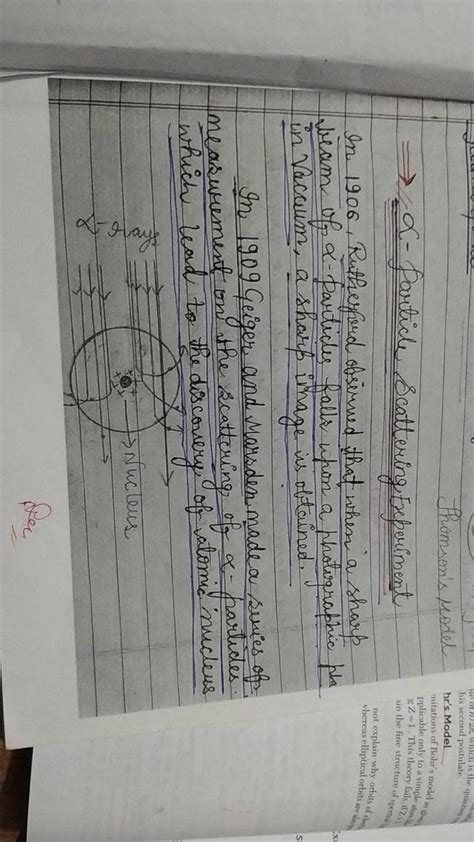 Thomson's Model
α-Particle Scattering Experiment
In 1906, Rutherford observed that when a sharp
beam of α-particles falls upon a photographic pla
in Vaccum, a sharp image is obtained.
In 1909 Geiger and Marsden made a series of
measurement on the scattering of α-particles.
which lead to the discovery of atomic nucleus
α-rays
Nucleus
which is the
his second postulate.
hr's Model
mitations of Bohr's model
pplicable only to a simple
g Z=1. This theory fails, if Z
in the fine structure of
not explain why orbits of
whereas elliptical orbits are